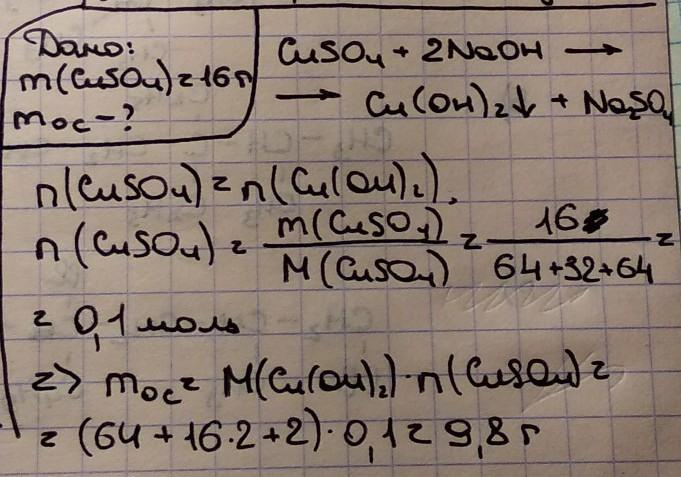 Дано:
m(CuSO₄) = 16 г
m ос - ?
CuSO₄ + 2NaOH →
→ Cu(OH)₂↓ + Na₂SO₄
n(CuSO₄) = n(Cu(OH)₂).
n(CuSO₄) = m(CuSO₄) / M(CuSO₄) = 16 / 64+32+64 =
= 0,1 моль
=> m ос = M(Cu(OH)₂)·n(CuSO₄) =
= (64 + 16·2+2)·0,1 = 9,8 г